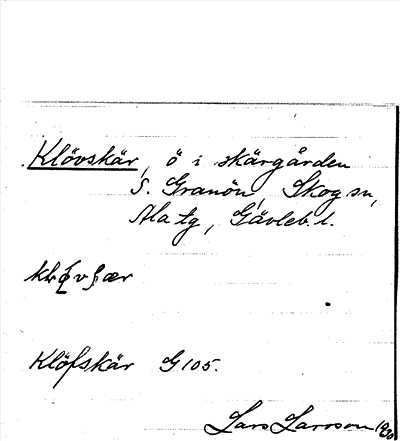 Klövskär, ö i skärgården
S. Granön, Skog sn,
Ala tg, Gävleb. l.
Klöfskär G 105.
Lars Larsson